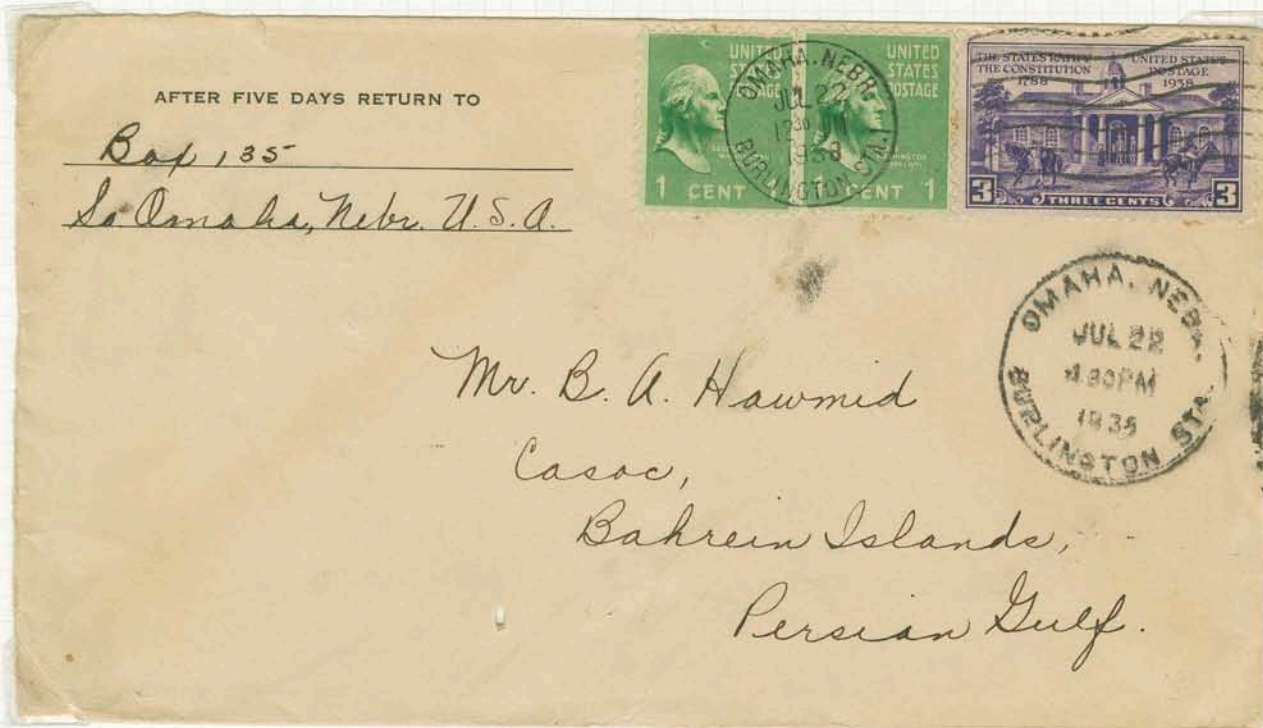 AFTER FIVE DAYS RETURN TO
Box 135
So Omaha, Nebr. U.S.A.
UNITED
STATES
POSTAGE
1 CENT
UNITED
STATES
POSTAGE
1 CENT 1
OMAHA, NEBR.
JUL 22
1938
BURLINGTON STA.
THE STATES RATIFY
THE CONSTITUTION
1788
UNITED STATES
POSTAGE
1938
3 THREE CENTS 3
OMAHA, NEBR.
JUL 22
4 30 PM
1938
BURLINGTON STA.
Mr. B. A. Hawmid
Casoc,
Bahrein Islands,
Persian Gulf.